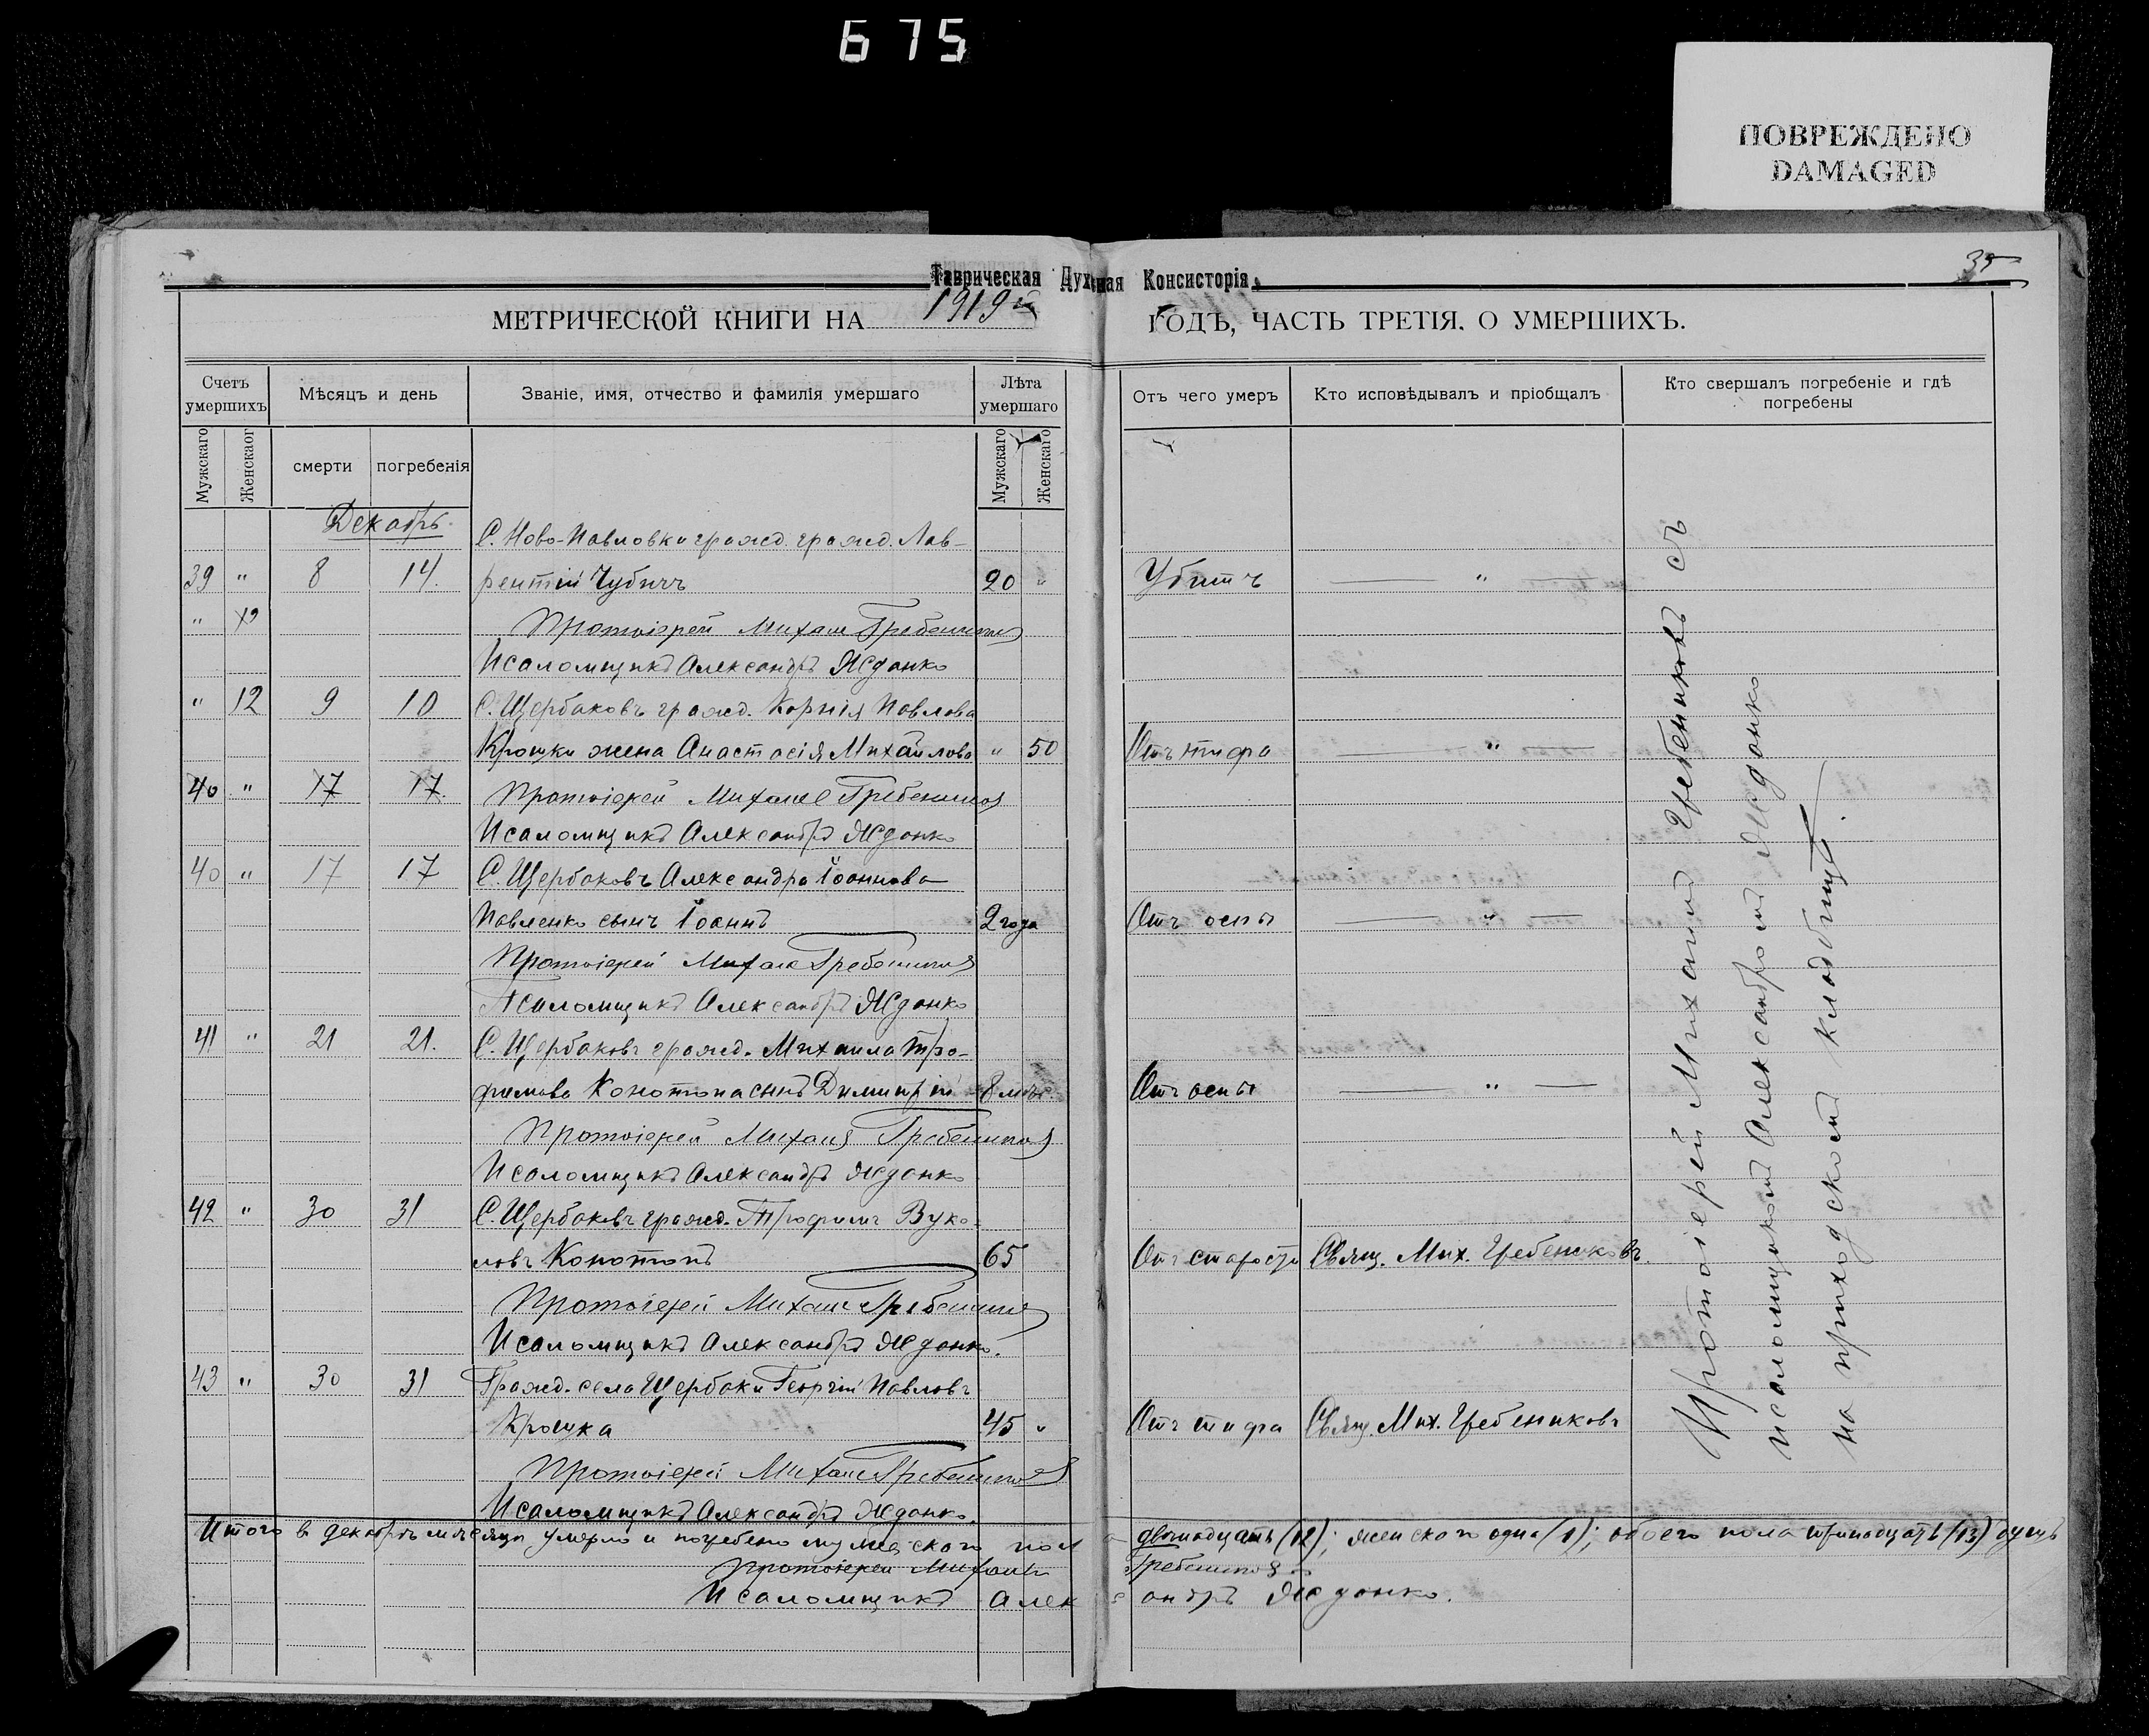 675
ПОВРЕЖДЕНО
DAMAGED
35
Таврическая Духовная Консисторія.
МЕТРИЧЕСКОЙ КНИГИ НА 1919й ГОДЪ, ЧАСТЬ ТРЕТІЯ, О УМЕРШИХЪ.
Счетъ умершихъ
Мѣсяцъ и день
Званіе, имя, отчество и фамилія умершаго
Лѣта умершаго
Отъ чего умеръ
Кто исповѣдывалъ и пріобщалъ
Кто свершалъ погребеніе и гдѣ погребены
Мужскаго
Женскаог
смерти
погребенія
Мужскаго
Женскаго
Декабрь.
С. Ново-Павловки гражд. гражд. Лав-
39 " 8 14. рентій Чубичъ 20 " Убитъ "
"
Протоіерей Михаил Гребеников
Псаломщикъ Александръ Жданко
" 12 9 10 С. Щербаковъ гражд. Корнія Павлова
Крошки жена Анастасія Михайлова " 50 Отъ тифа "
40 " 17 17. Протоіерей Михаил Гребеников
Псаломщикъ Александръ Жданко
40 " 17 17 С. Щербаковъ Александра Іоаннова
Павленко сынъ Іоаннъ 2 года Отъ оспы "
Протоіерей Михаил Гребеников
Псаломщикъ Александръ Жданко
41 " 21 21. С. Щербаковъ гражд. Михаила Тро-
фимова Конотопа сынъ Димитрій 8 мѣс. Отъ оспы "
Протоіерей Михаил Гребеников
Псаломщикъ Александръ Жданко
42 " 30 31 С. Щербаковъ гражд. Трофимъ Вуко-
ловъ Конотопъ 65 Отъ старости Свящ. Мих. Гребениковъ.
Протоіерей Михаил Гребеников
Псаломщикъ Александръ Жданко.
43 " 30 31 Гражд. села Щербаки Георгій Павловъ
Крошка 45 " Отъ тифа Свящ. Мих. Гребениковъ
Протоіерей Михаил Гребеников
Псаломщикъ Александръ Жданко.
Протоіерей Михаил Гребениковъ съ
псаломщикомъ Александромъ Жданко
на приходскомъ кладбищѣ.
Итого в декабрѣ мѣсяцѣ умерло и погребено мужескаго пола двенадцать (12); женскаго одна (1); обоего пола тринадцать (13) душъ
Протоіерей Михаилъ Гребеников
Псаломщикъ Александръ Жданко.